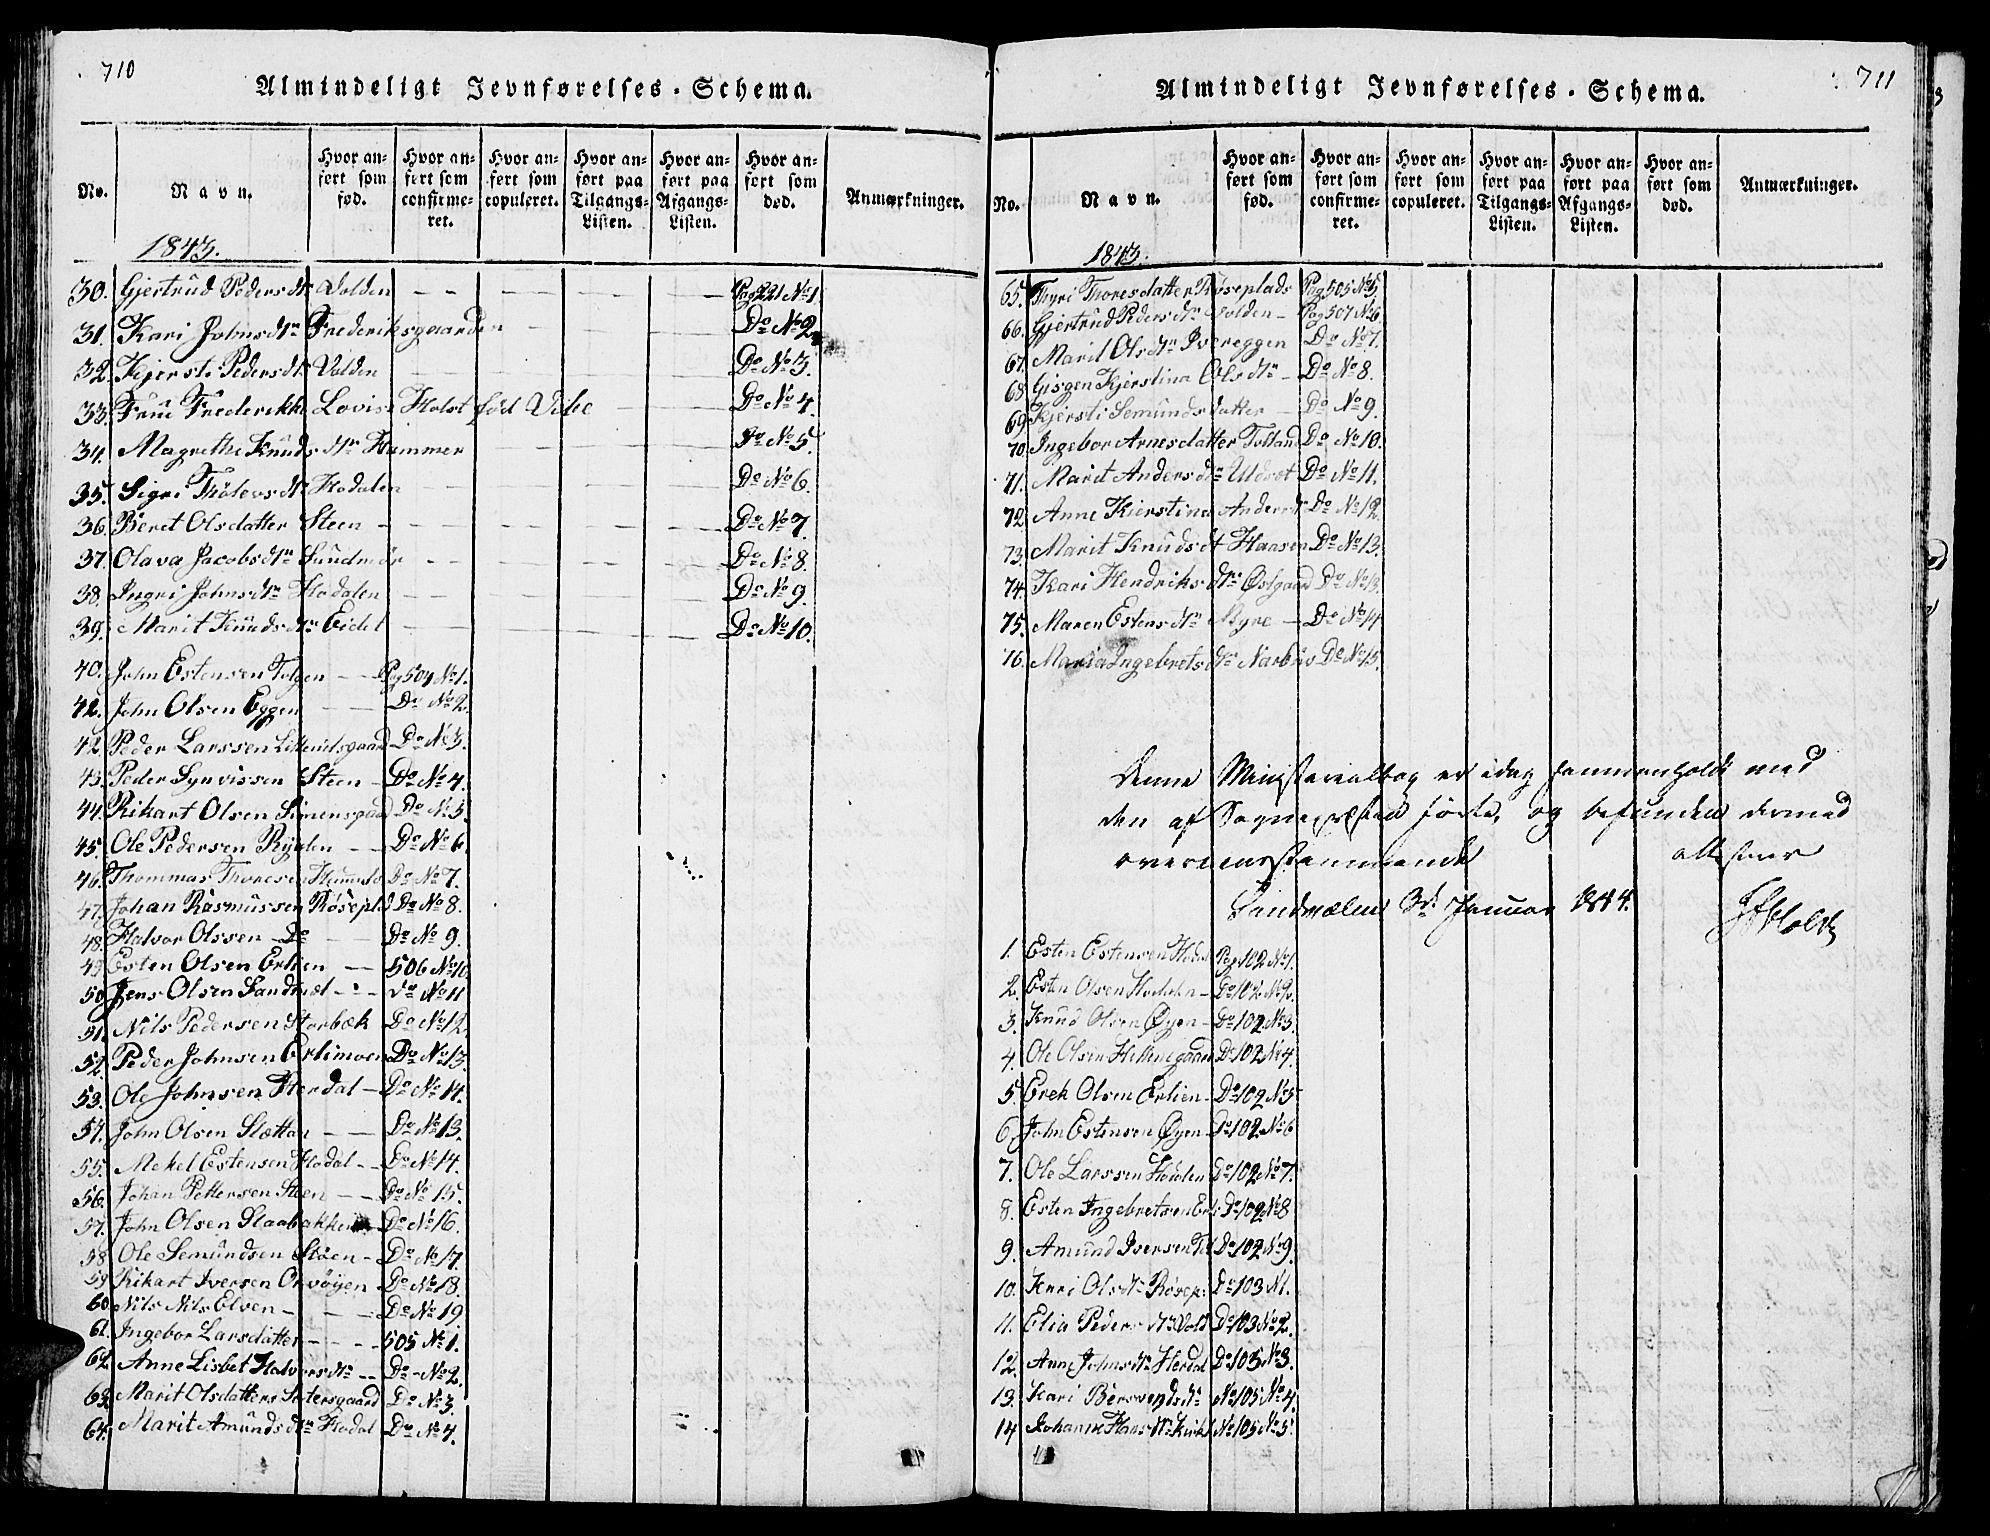 710
Almindeligt Jevnførelses-Schema.
No.
Navn.
Hvor anført som fød.
Hvor anført som confirmeret.
Hvor anført som copuleret.
Hvor anført paa Tilgangs-Listen.
Hvor anført paa Afgangs-Listen.
Hvor anført som død.
Anmærkninger.
1843.
30. Gjertrud Pedersdtr Volden Pag 221 No 1
31. Kari Johnsdtr Frederiksgaarden Do No 2
32. Kjersti Pedersdtr Volden Do No 3.
33. Frue Frederikke Lovise Holst fød Vibe Do No 4.
34. Magrethe Knudsdtr Hammer Do No 5.
35. Sigri Tholevsdtr Hodalen Do No 6.
36. Beret Olsdatter Steen Do No 7.
37. Olava Jacobsdtr Sundmør Do No 8.
38. Ingri Johnsdtr Hodalen Do No 9.
39. Marit Knudsdtr Eidet Do No 10.
40. John Estensen Tolgen Pag 504 No 1.
42. John Olsen Eggen Do No 2.
42. Peder Larssen Do No 3.
43. Peder Synvissen Steen Do No 4.
44. Rikart Olsen Simensgaard Do No 5
45. Ole Pedersen Ryalen Do No 6
46. Thommas Thoresen Do No 7.
47. Johan Rasmussen Røsepl. Do No 8.
48. Halvor Olssen Do Do No 9.
49. Esten Olsen Erlien 506 No 10
50. Jens Olsen Sandmæl Do No 11
51. Nils Pedersen Storbæk Do No 12.
52. Peder Johnsen Erlimoen Do No 13.
53. Ole Johnsen Herdal Do No 14.
54. John Olsen Slætten Do No 13.
55. Mekel Estensen Hodal Do No 14.
56. Johan Pettersen Steen Do No 15.
57. John Olsen Slaabakken Do No 16.
58. Ole Semundsen Støen Do No 17.
59. Rikart Iversen Orvøigen Do No 18.
60. Nils Nils Elven Do No 19
61. Ingebor Larsdatter 505 No 1.
62. Anne Lisbet Halvorsdtr Do No 2.
63. Marit Olsdatter Do No 3.
64. Marit Amundsdtr Hodal Do No 4.
711
Almindeligt Jevnførelses-Schema.
No.
Navn.
Hvor anført som fød.
Hvor anført som confirmeret.
Hvor anført som copuleret.
Hvor anført paa Tilgangs-Listen.
Hvor anført paa Afgangs-Listen.
Hvor anført som død.
Anmærkninger.
1843.
65. Thyri Thoresdatter Røseplads Pag 505 No 5
66. Gjertrud Pedersdtr Volden Pag 507 No 6
67. Marit Olsdtr Ivereggen Do No 7.
68. Kjerstina Olsdtr Do No 8.
69. Kjersti Semundsdatter Do No 9.
70. Ingebor Arnesdatter Do No 10.
71. Marit Andersdtr Do No 11.
72. Anne Kierstina Do No 12.
73. Marit Knudsdt Haasen Do No 13.
74. Kari Hendriksdtr Østgaard Do No 13.
75. Maren Estensdtr Myre Do No 14
76. Maria Ingebretsdtr Narbus Do No 15.
Denne Ministerialbog er idag sammenholdt med
den af Sognepræsten førte, og befunden dermed
overeensstemmende attesterer
Sandmælen 3d Januar 1844. Holst
1. Esten Estensen Pag 102 No 1.
2. Esten Olsen Hodalen Do 102 No 2.
3. Knud Olsen Øyen Do 102 No 3.
4. Ole Olsen Do 102 No 4.
5. Erek Olsen Erlien Do 102 No 5
6. John Estensen Øyen Do 102 No 6
7. Ole Larssen Hodalen Do 102 No 7.
8. Esten Ingebretsen Do 102 No 8
9. Amund Iversen Do 102 No 9.
10. Kari Olsdtr Røsep. Do 103 No 1.
11. Elia Pedersdtr Vold Do 103 No 2.
12. Anne Johnsdtr Herdal Do 103 No 3.
13. Kari No 105 No 4.
14 Johanne Hansdtr No 105 No 5.